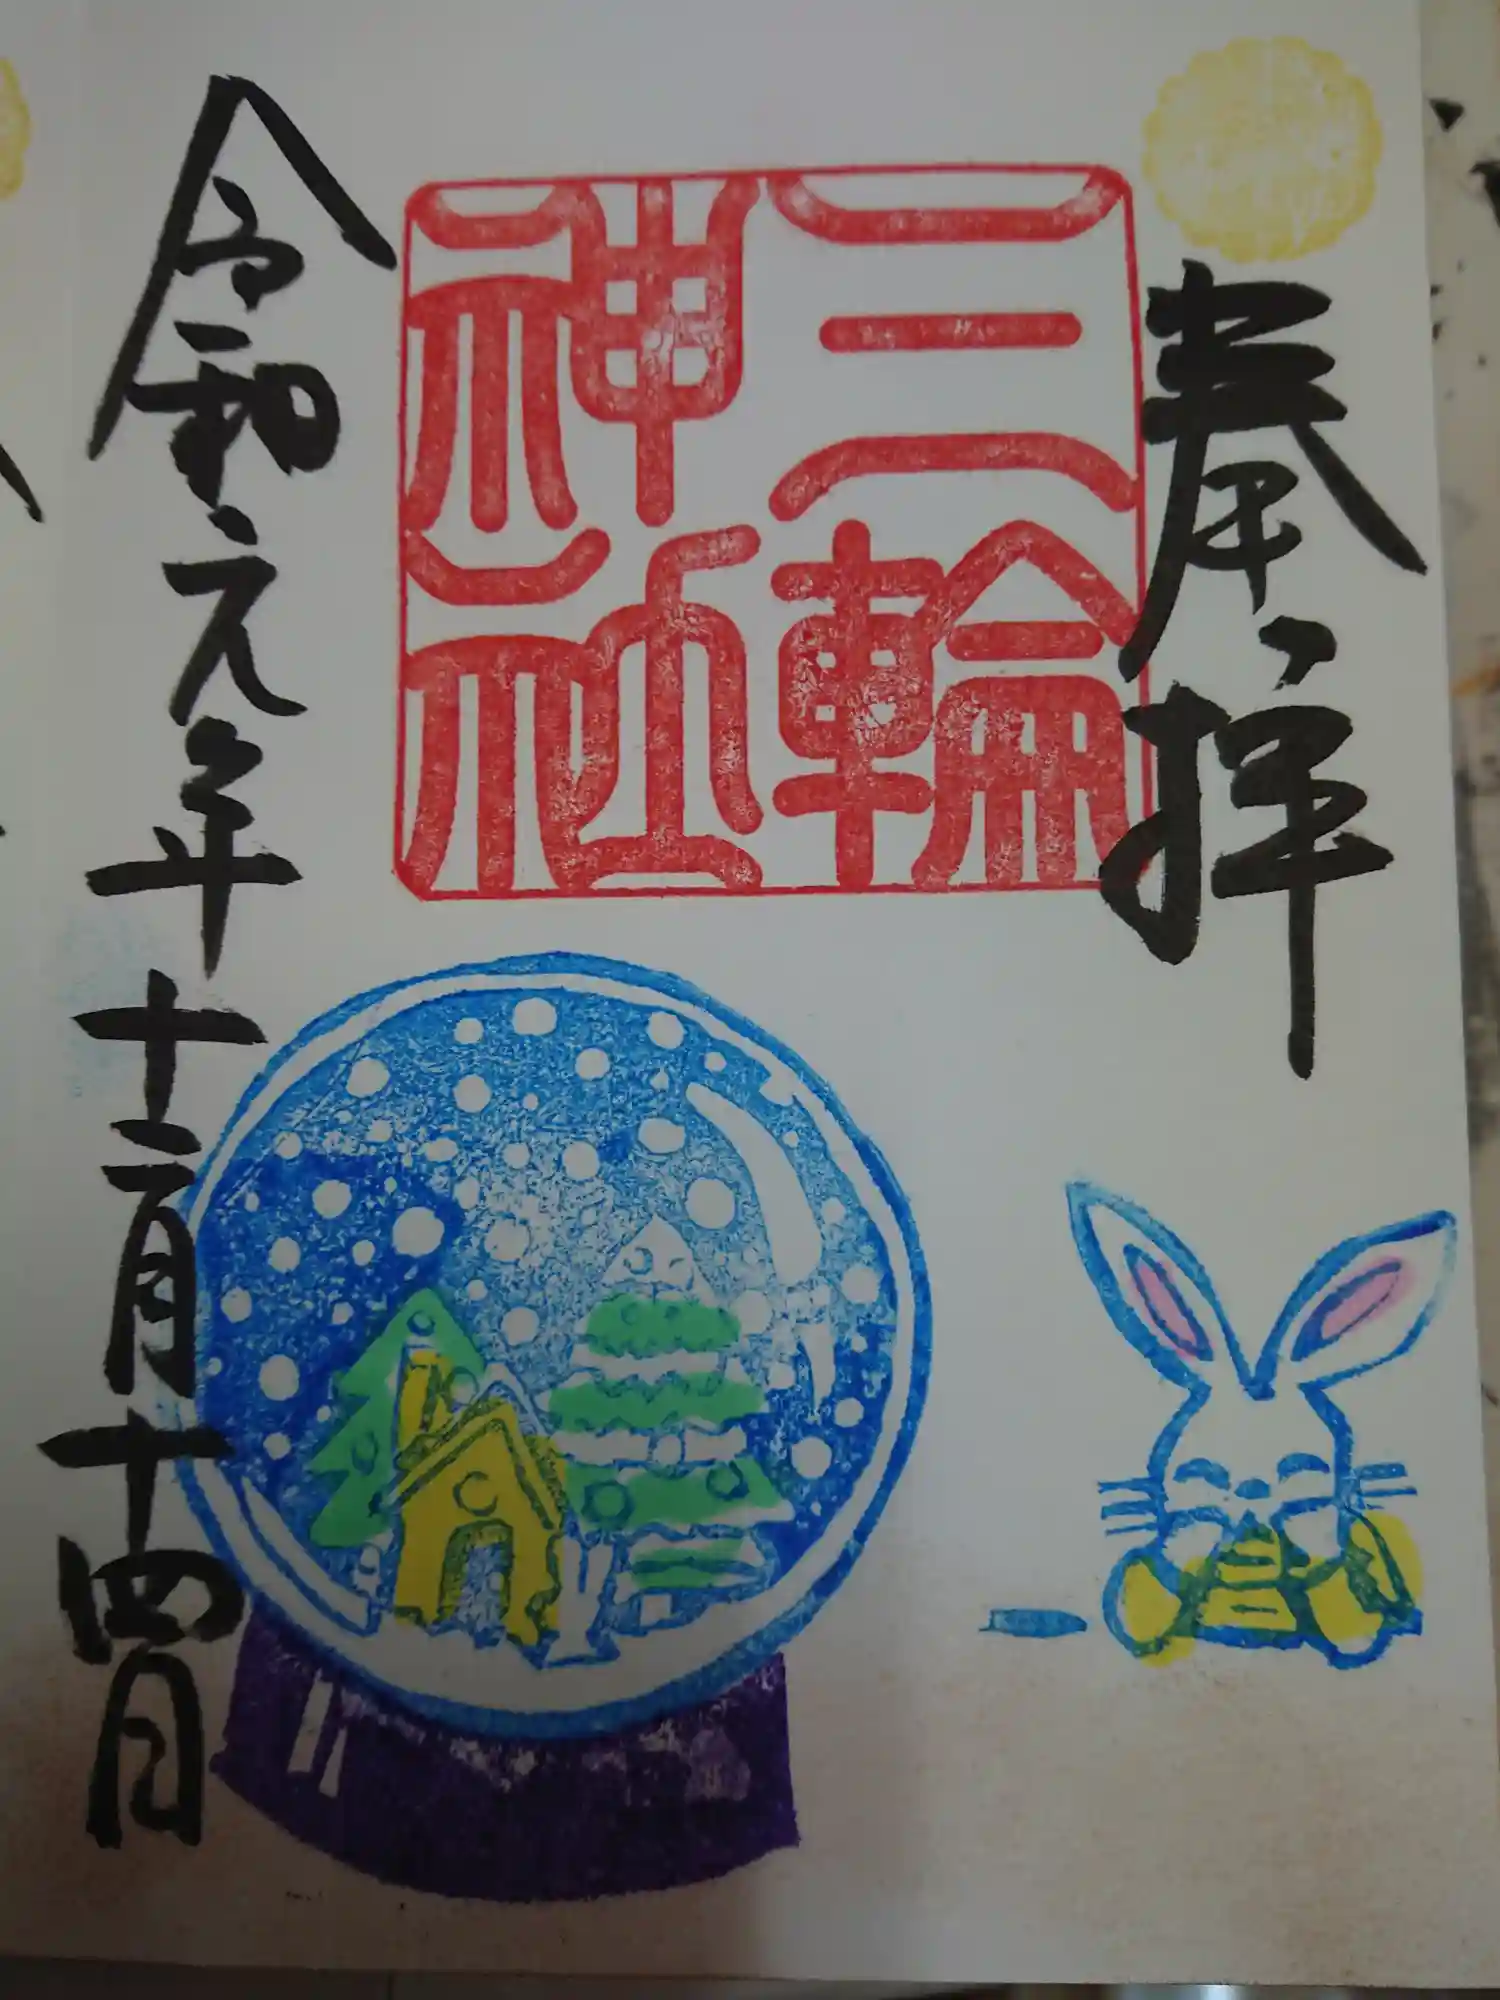 奉拝
三輪
神社
令和元年十二月十四日